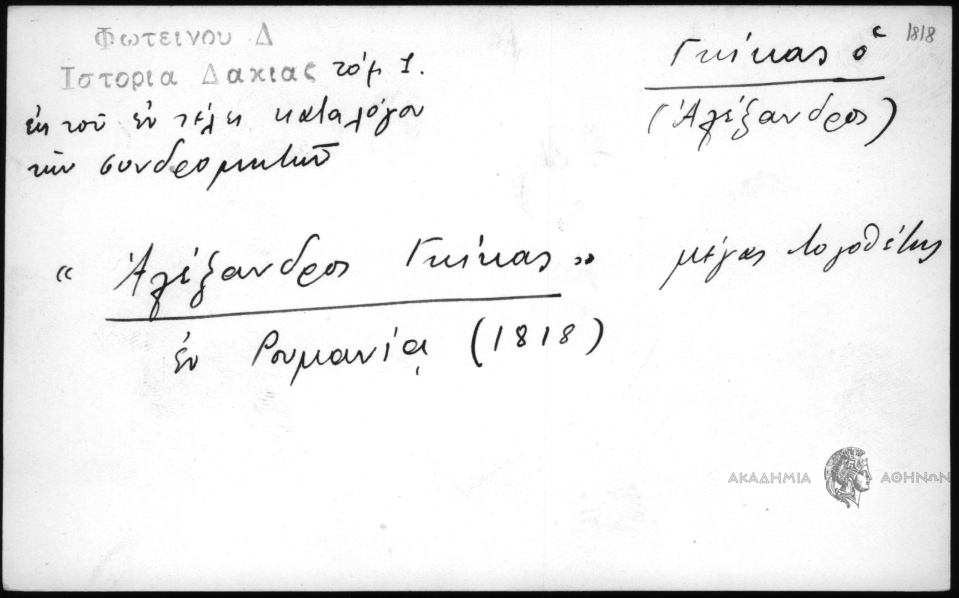 1818
Φωτεινου Δ
Ιστορια Δακιας τόμ 1.
ἐκ τοῦ ἐν τέλει καταλόγου
τῶν συνδρομητῶν
Γκίκας ὁ
(Ἀλέξανδρος)
“ Ἀλέξανδρος Γκίκας ” μέγας λογοθέτης
ἐν Ρουμανίᾳ (1818)
ΑΚΑΔΗΜΙΑ ΑΘΗΝΩΝ